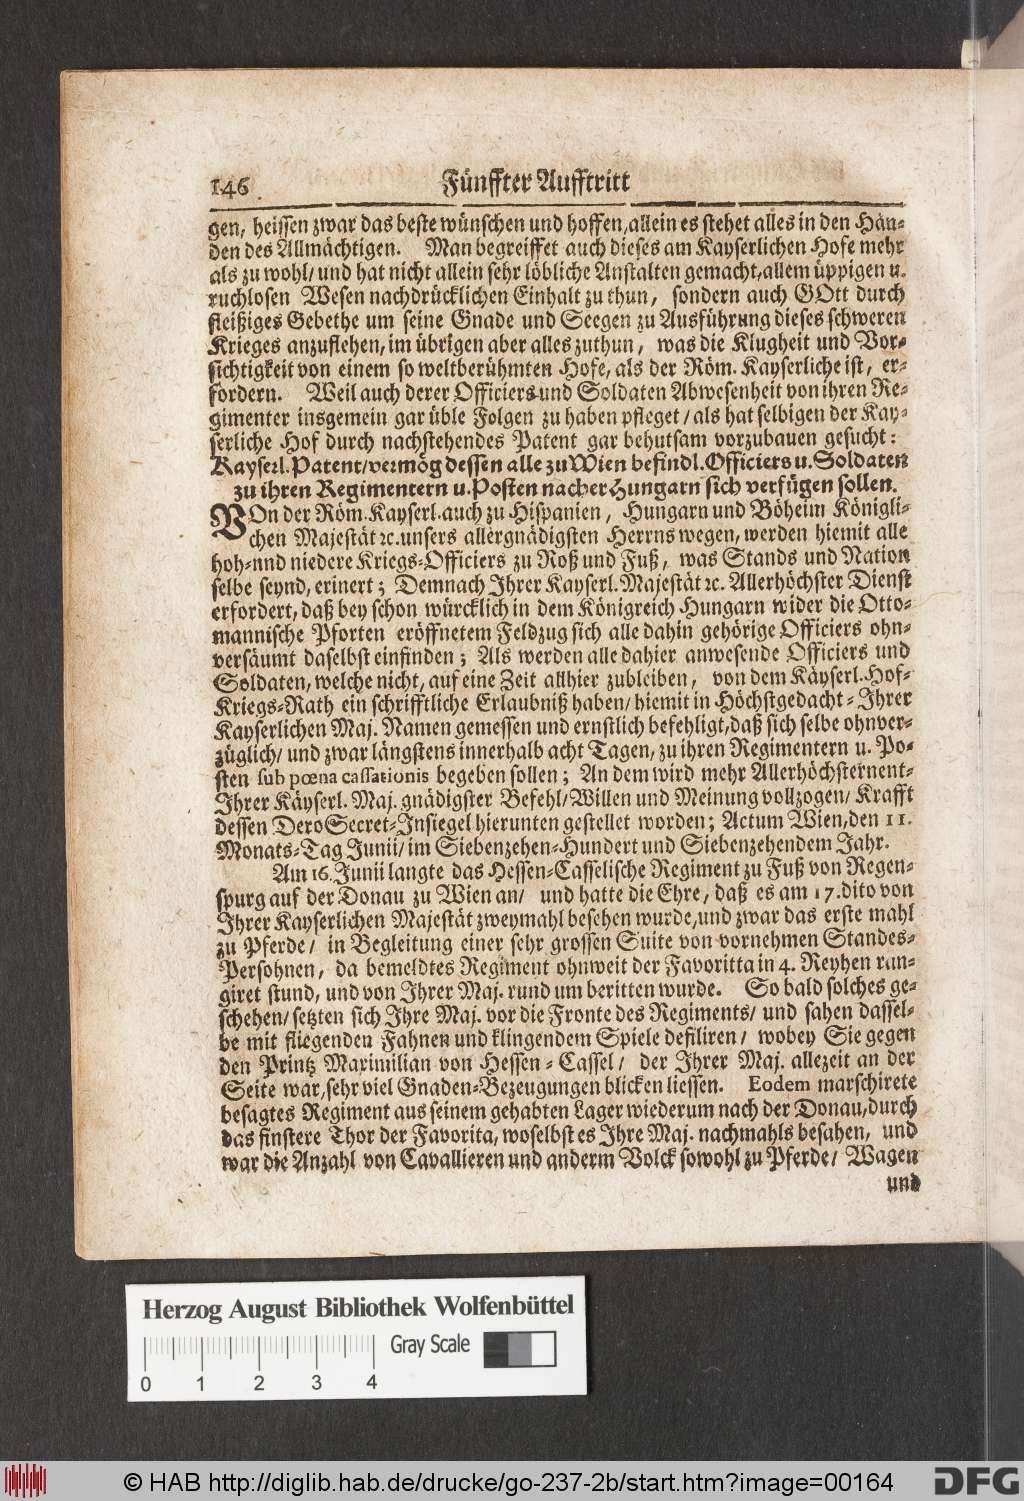 146 Fünffter Aufftritt
gen, heissen zwar das beste wünschen und hoffen, allein es stehet alles in den Hän-
den des Allmächtigen. Man begreiffet auch dieses am Kayserlichen Hofe mehr
als zu wohl/ und hat nicht allein sehr löbliche Anstalten gemacht, allem üppigen u.
ruchlosen Wesen nachdrücklichen Einhalt zu thun, sondern auch GOtt durch
fleißiges Gebethe um seine Gnade und Seegen zu Ausführung dieses schweren
Krieges anzuflehen, im übrigen aber alles zuthun, was die Klugheit und Vor-
sichtigkeit von einem so weltberühmten Hofe, als der Röm. Kayserliche ist, er-
fordern. Weil auch derer Officiers und Soldaten Abwesenheit von ihren Re-
gimenter insgemein gar üble Folgen zu haben pfleget/ als hat selbigen der Kay-
serliche Hof durch nachstehendes Patent gar behutsam vorzubauen gesucht:
Kayserl. Patent/ vermög dessen alle zu Wien befindl. Officiers u. Soldaten
zu ihren Regimentern u. Posten nacher Hungarn sich verfügen sollen.
VOn der Röm. Kayserl. auch zu Hispanien, Hungarn und Böheim Königli-
chen Majestät ꝛc. unsers allergnädigsten Herrns wegen, werden hiemit alle
hoh- nnd niedere Kriegs-Officiers zu Roß und Fuß, was Stands und Nation
selbe seynd, erinert; Demnach Ihrer Kayserl. Majestät ꝛc. Allerhöchster Dienst
erfordert, daß bey schon würcklich in dem Königreich Hungarn wider die Otto-
mannische Pforten eröffnetem Feldzug sich alle dahin gehörige Officiers ohn-
versäumt daselbst einfinden; Als werden alle dahier anwesende Officiers und
Soldaten, welche nicht, auf eine Zeit allhier zubleiben, von dem Käyserl. Hof-
Kriegs-Rath ein schrifftliche Erlaubniß haben/ hiemit in Höchstgedacht-Ihrer
Kayserlichen Maj. Namen gemessen und ernstlich befehligt, daß sich selbe ohnver-
züglich/ und zwar längstens innerhalb acht Tagen, zu ihren Regimentern u. Po-
sten sub pœna cassationis begeben sollen; An dem wird mehr Allerhöchsternent-
Ihrer Käyserl. Maj. gnädigster Befehl/ Willen und Meinung vollzogen/ Krafft
dessen Dero Secret-Insiegel hierunten gestellet worden; Actum Wien, den 11.
Monats-Tag Junii/ im Siebenzehen-Hundert und Siebenzehendem Jahr.
Am 16. Junii langte das Hessen-Casselische Regiment zu Fuß von Regen-
spurg auf der Donau zu Wien an/ und hatte die Ehre, daß es am 17. dito von
Ihrer Kayserlichen Majestät zweymahl besehen wurde, und zwar das erste mahl
zu Pferde/ in Begleitung einer sehr grossen Suite von vornehmen Standes-
Persohnen, da bemeldtes Regiment ohnweit der Favoritta in 4. Reyhen ran-
giret stund, und von Ihrer Maj. rund um beritten wurde. So bald solches ge-
schehen/ setzten sich Ihre Maj. vor die Fronte des Regiments/ und sahen dassel-
be mit fliegenden Fahnen und klingendem Spiele defiliren/ wobey Sie gegen
den Printz Maximilian von Hessen-Cassel/ der Ihrer Maj. allezeit an der
Seite war, sehr viel Gnaden-Bezeugungen blicken liessen. Eodem marschirete
besagtes Regiment aus seinem gehabten Lager wiederum nach der Donau, durch
das finstere Thor der Favorita, woselbst es Ihre Maj. nachmahls besahen, und
war die Anzahl von Cavallieren und anderm Volck sowohl zu Pferde/ Wagen
und
Herzog August Bibliothek Wolfenbüttel
Gray Scale
0 1 2 3 4
© HAB http://diglib.hab.de/drucke/go-237-2b/start.htm?image=00164
DFG